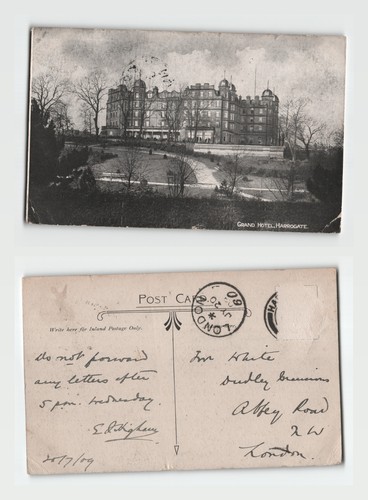 GRAND HOTEL, HARROGATE.
POST CARD
Write here for Inland Postage Only.
LONDON
JY 20
09
HA
Do not forward
any letters after
5 p.m. Wednesday.
20/7/09
White
Dudley Mansions
Abbey Road
N W
London.